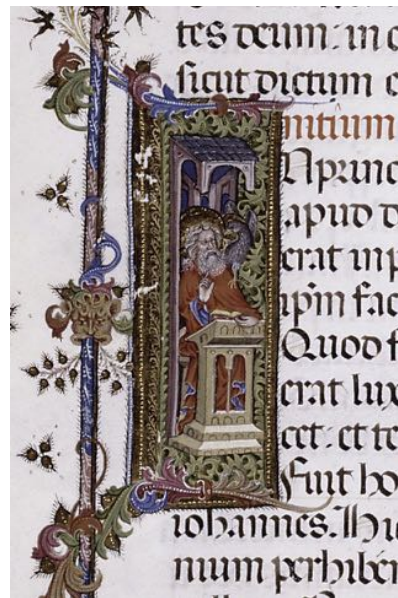 tes deum: in
sicut dictum
nitium
N princ
apud d
erat in p
ipm fac
Quod f
erat lux
cet: et te
Fuit ho
iohannes. Hic
nium perhiben